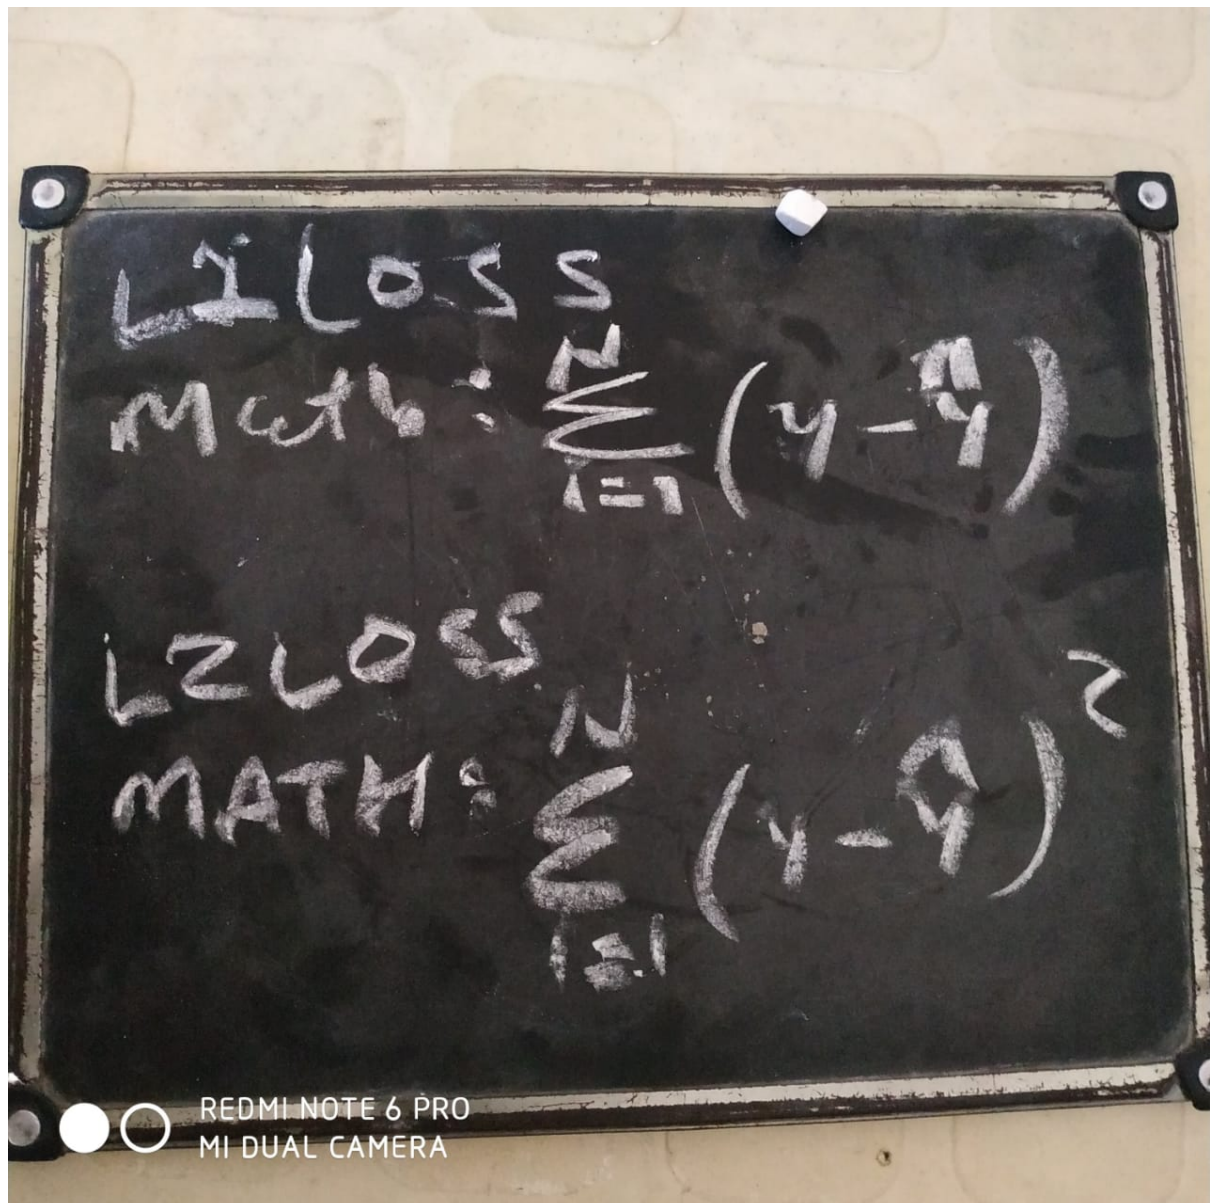 L1 LOSS
Math: N Σ i=1 (y - ŷ)
L2 LOSS
MATH: N Σ i=1 (y - ŷ)²
REDMI NOTE 6 PRO
MI DUAL CAMERA